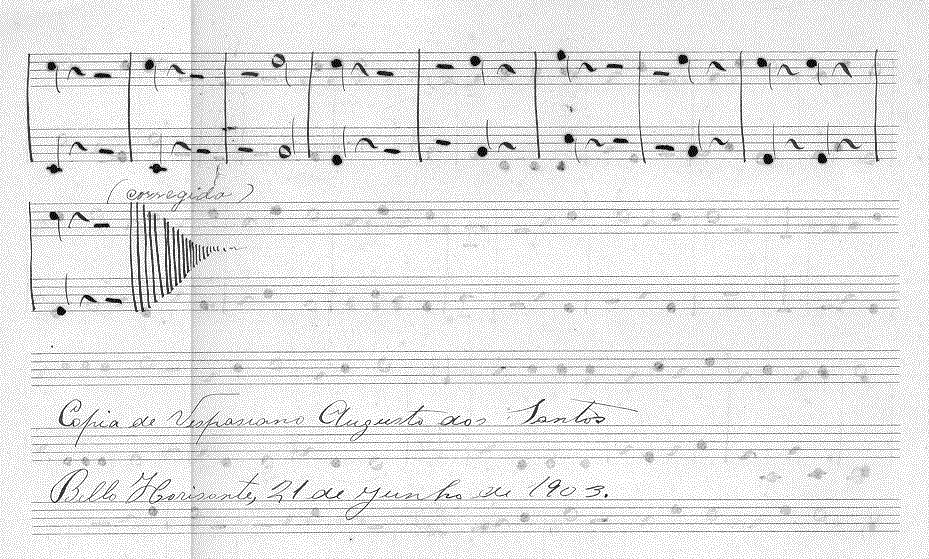 (corregida)
Copia de Vespasiano Augusto dos Santos
Bello Horisonte, 21 de Junho de 1903.